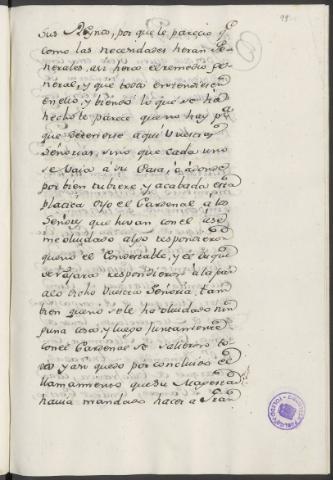 99
sus Reynos, por que le parecio q.e
como las necesidades heran Ge-
nerales, asi fuera el remedio ge-
neral, y que todos entendiesen
en ello, y viendo lo que se ha
hecho le parece que no hay p.a
que detenerse aqui Vuestras
Señorias, sino que cada uno
se vaya a su Casa, o a donde
por bien tubiere, y acabada esta
platica dijo el Cardenal a los
Señores que hivan con el ase
me olvidado algo respondieron
que no el Condestable, y el Duque
de Vejar respondieron a la par
a lo dicho Vuestra Señoria tam
bien que no se le ha olvidado nin
guna cosa, y luego juntamente
con el Cardenal se salieron to-
dos y asi quedo por concluido el
llamamiento que Su Magestad
havia mandado hacer a Gran